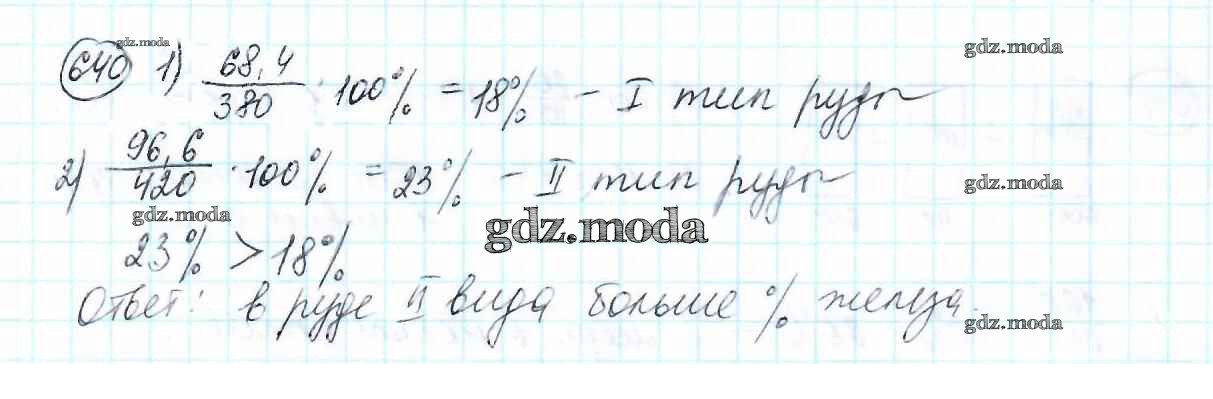 640 1) 68,4/380 · 100% = 18% – I тип руды
2) 96,6/420 · 100% = 23% – II тип руды
23% > 18%
Ответ: в руде II вида больше % железа.
gdz.moda
gdz.moda
gdz.moda
gdz.moda
gdz.moda
gdz.moda